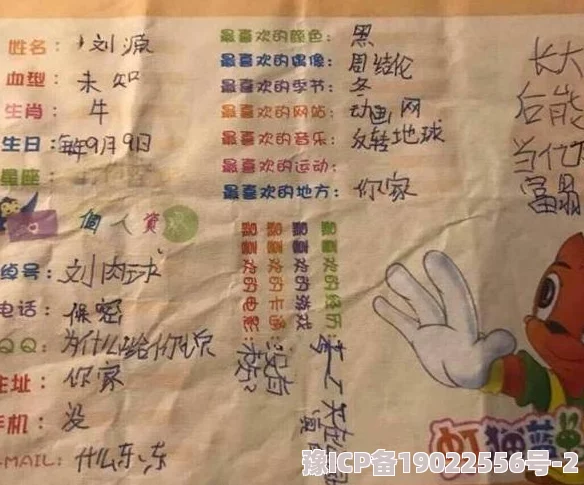 姓名： 刘源
血型： 未知
生肖： 牛
生日： 每年9月9日
星座：
最喜欢的颜色： 黑
最喜欢的偶像： 周结伦
最喜欢的季节： 冬
最喜欢的网站： 动画网
最喜欢的音乐： 反转地球
最喜欢的运动：
最喜欢的地方： 你家
长大
后能
当
富
個人資
绰号： 刘肉球
电话： 保密
QQ： 为什么给你
住址： 你家
手机： 没
E-MAIL： 什么东东
最喜欢的经历
最喜欢的游戏
最喜欢的卡通： 没有
最喜欢的电影：
虹猫蓝兔
豫ICP备19022556号-2